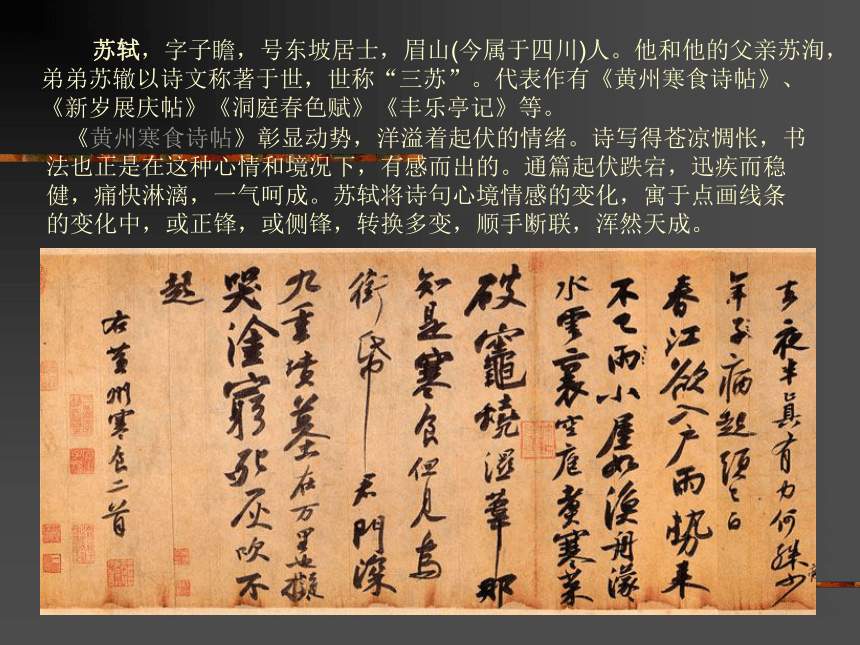 苏轼，字子瞻，号东坡居士，眉山(今属于四川)人。他和他的父亲苏洵，
弟弟苏辙以诗文称著于世，世称“三苏”。代表作有《黄州寒食诗帖》、
《新岁展庆帖》《洞庭春色赋》《丰乐亭记》等。
《黄州寒食诗帖》彰显动势，洋溢着起伏的情绪。诗写得苍凉惆怅，书
法也正是在这种心情和境况下，有感而出的。通篇起伏跌宕，迅疾而稳
健，痛快淋漓，一气呵成。苏轼将诗句心境情感的变化，寓于点画线条
的变化中，或正锋，或侧锋，转换多变，顺手断联，浑然天成。
去夜半真有力何殊少
年子病起頭已白
春江欲入户雨勢来
不已雨小屋如漁舟濛
水雲裏空庖煮寒菜
破竈燒濕葦那
知是寒食但見烏
銜帋君門深
九重墳墓在万里也擬
哭塗窮死灰吹不
起
右黄州寒食二首